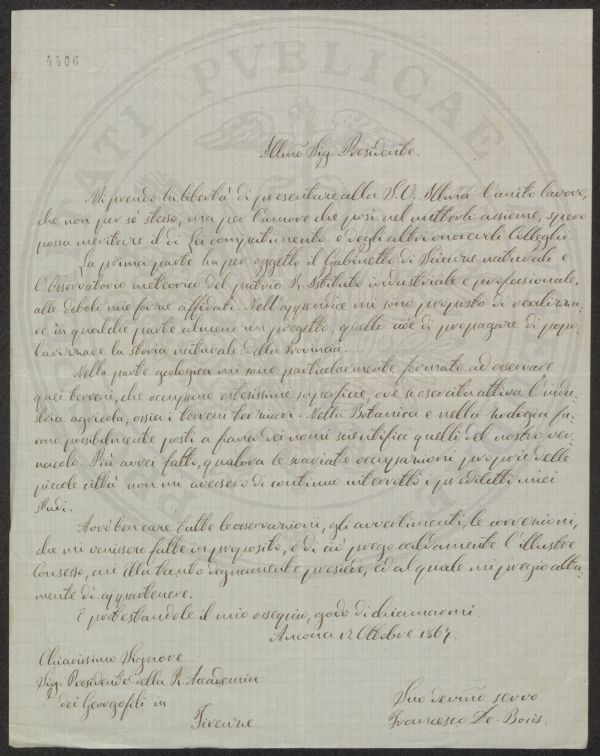 4406
Illmo Sig. Presidente.
Mi prendo la libertà di presentare alla S. V. Illma l'unito lavoro,
che non per sè stesso, ma per l'amore che posi nel metterlo assieme, spero
possa meritare il di Lei compatimento e degli altri onorevoli Colleghi.
La prima parte ha per oggetto il Gabinetto di Scienze naturali e
l'Osservatorio meteorico del patrio R. Istituto industriale e professionale,
alle deboli mie forze affidati. Nell'appendice mi sono proposto di realizza-
re in qualche parte almeno un progetto, quello cioè di propagare di popo-
larizzare la storia naturale della Provincia.
Nella parte geologica mi sono particolarmente fermato ad osservare
quei terreni, che occupano estesissime superficie, ove si esercita attiva l'indu-
stria agricola, ossia i terreni terziari. Nella Botanica e nella Zoologia fu-
rono possibilmente posti a fianco dei nomi scientifici quelli del nostro ver-
nacolo. Più avrei fatti, qualora le svariate occupazioni proprie delle
piccole città non mi avessero di continuo interrotti i prediletti miei
studi.
Avrò ben care tutte le osservazioni, gli avvertimenti, le correzioni,
che mi venissero fatte in proposito, e di ciò prego caldamente l'illustre
Consesso, cui Ella tanto degnamente presiede, ed al quale mi pregio alta-
mente di appartenere.
E protestandole il mio ossequio, godo di chiamarmi.
Ancona 12 Ottobre 1867.
Chiarissimo Signore
Sig. Presidente della R. Accademia
dei Georgofili in
Firenze
Suo devmo servo
Francesco De-Bosis.
ATI PVBLICAE